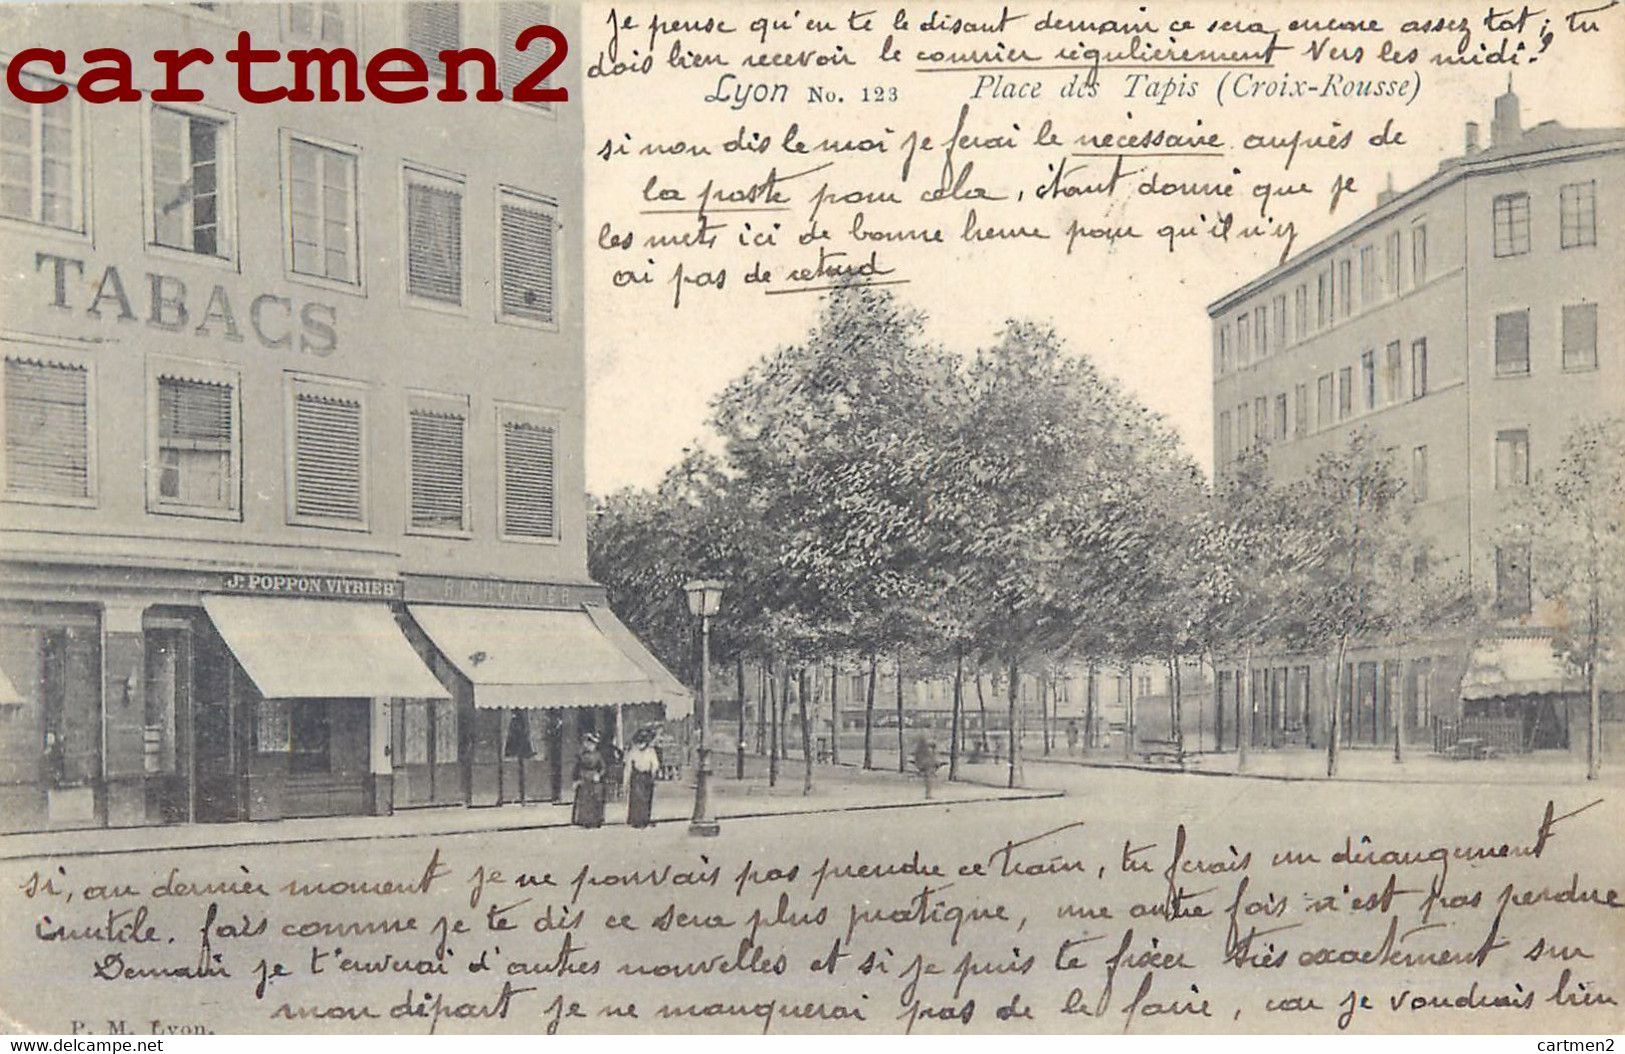 Je pense qu'en te le disant demain ce sera encore assez tot; tu
dois bien recevoir le courrier régulièrement vers les midi?
cartmen2
Lyon No. 123 Place des Tapis (Croix-Rousse)
si non dis le moi je ferai le nécessaire auprès de
la poste pour cela, étant donné que je
les mets ici de bonne heure pour qu'il n'y
ai pas de retard
TABACS
Jh POPPON VITRIER
si, au dernier moment je ne pouvais pas prendre ce train, tu ferais un dérangement
inutile. fais comme je te dis ce sera plus pratique, une autre fois n'est pas perdue
Demain je t'enverrai d'autres nouvelles et si je puis te fixer très exactement sur
mon départ je ne manquerai pas de le faire, car je voudrais bien
P. M. Lyon.
cartmen2
cartmen2